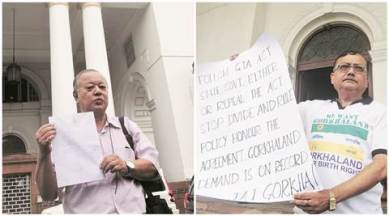 FOLLOW GTA ACT
STATE GOVT. EITHER
OR REPEAL THE ACT
STOP DIVIDE AND RULE
POLICY HONOUR THE
AGREEMENT GORKHALAND
DEMAND IS ON RECORD
JAI GORKHA
WE WANT
GORKHALAND
GORKHALAND
BIRTH RIGHT